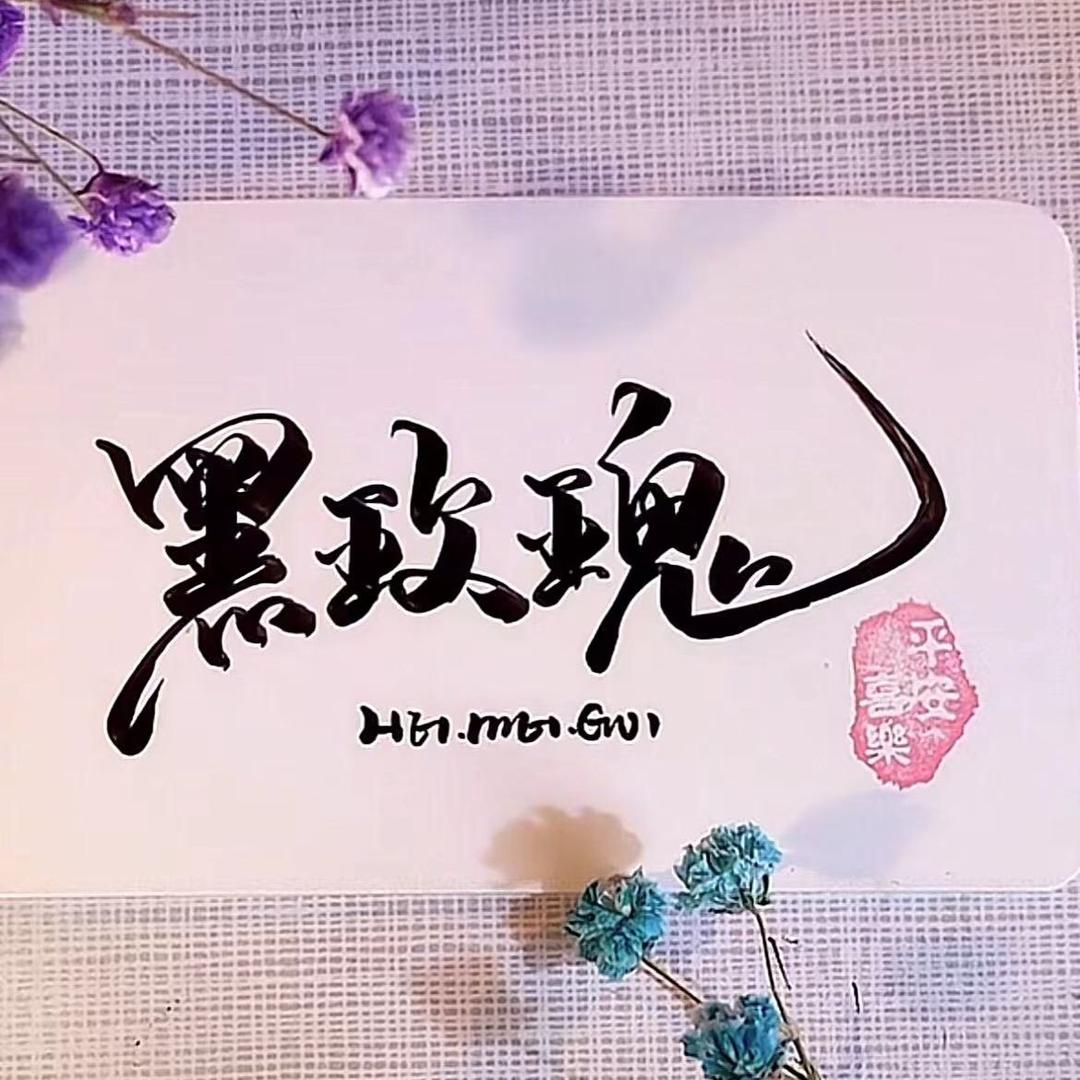 黑玫瑰
HEI.MEI.GUI
平安
喜樂